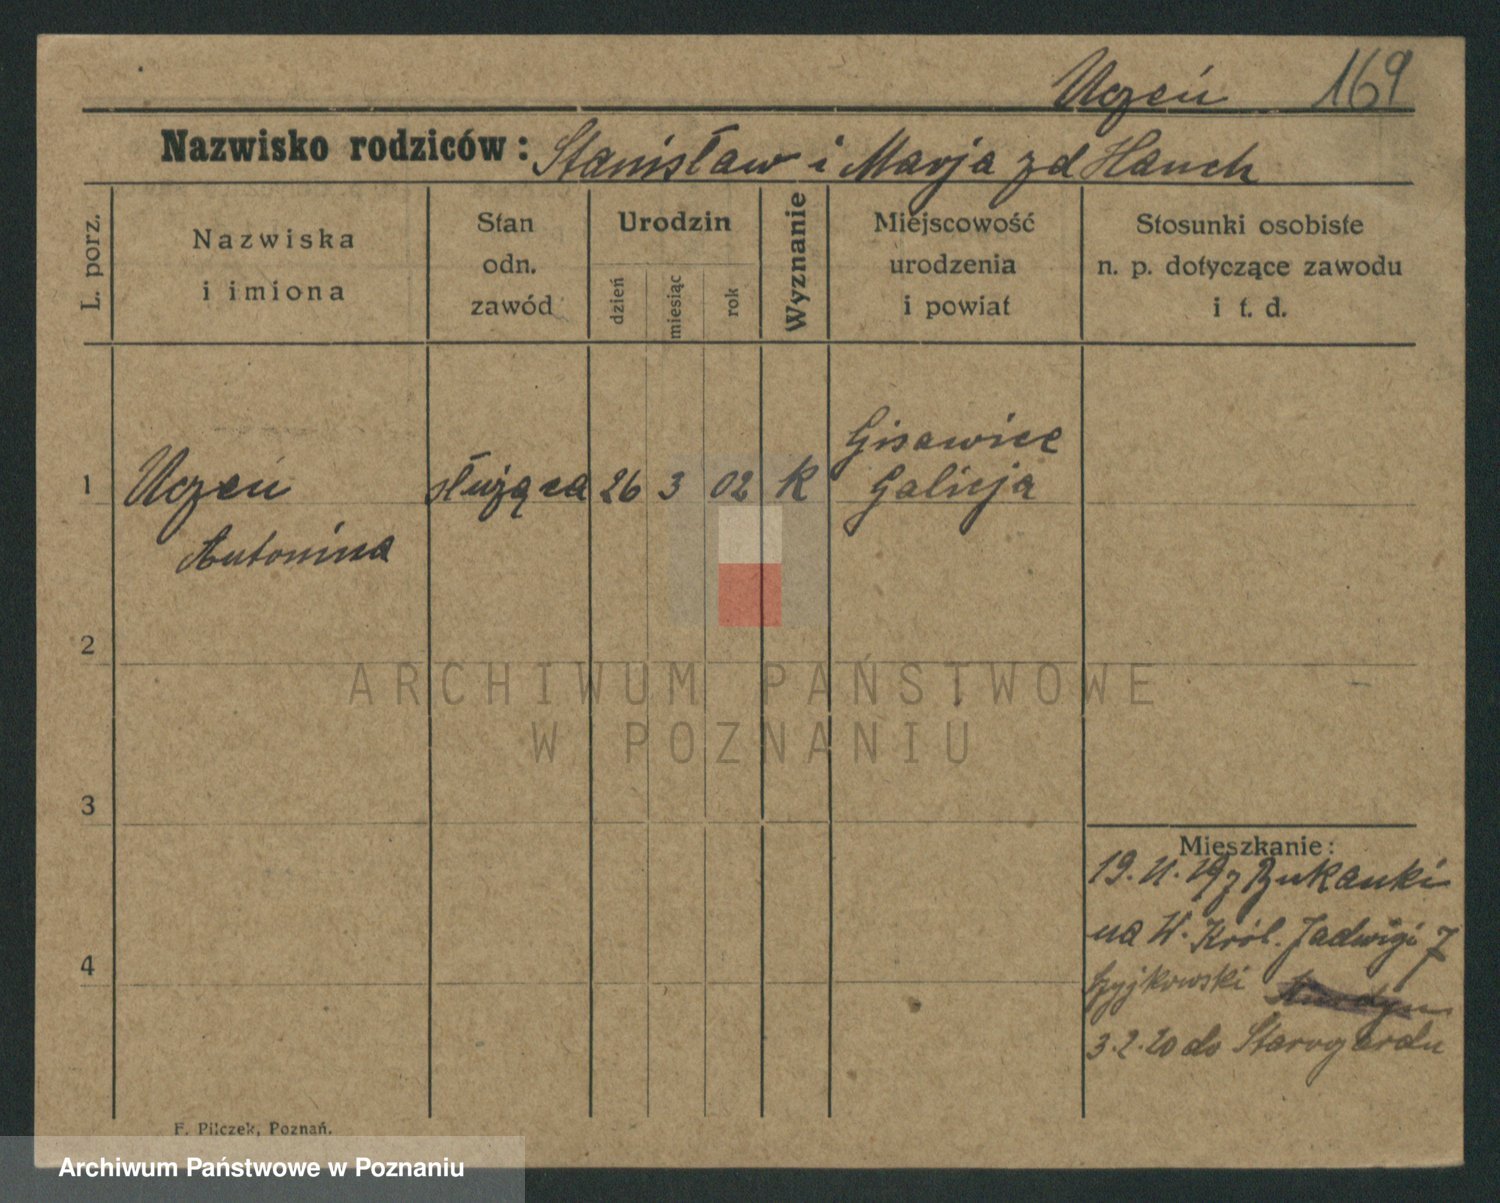 Uczeń 169
Nazwisko rodziców: Stanisław i Marja zd Hauch
L. porz.
Nazwiska
i imiona
Stan
odn.
zawód
Urodzin
dzień
miesiąc
rok
Wyznanie
Miejscowość
urodzenia
i powiat
Stosunki osobiste
n. p. dotyczące zawodu
i t. d.
1 Uczeń służąca 26 3 02 K Gisawice
Galicja
Antonina
2
3
4
Mieszkanie:
19. 11. 19 z Bukauki
na W. Król. Jadwigi 7
3. 2. 20 do Starogardu
F. Pilczek, Poznań.
ARCHIWUM PAŃSTWOWE
W POZNANIU
Archiwum Państwowe w Poznaniu